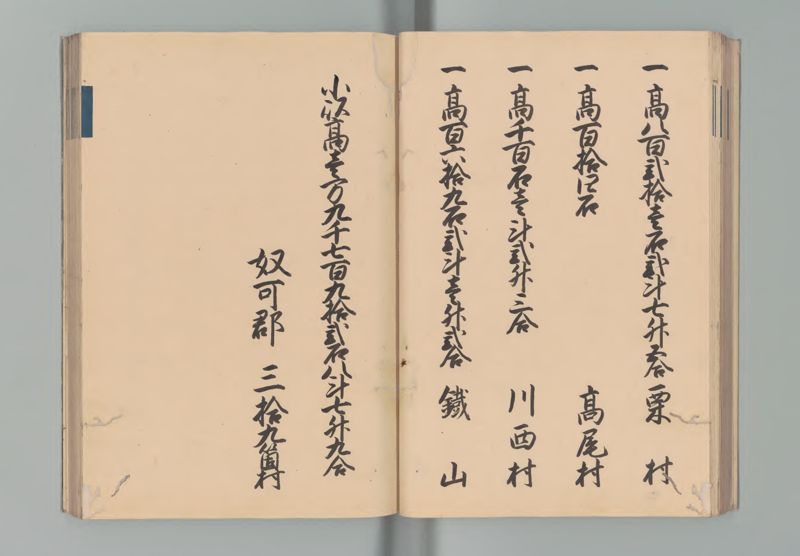 一 高八百弐拾壱石弐斗七升五合 栗村
一 高百拾四石 高尾村
一 高千百石壱斗弐升三合 川西村
一 高百六拾九石弐斗壱升弐合 鐵山
小以高壱万九千七百九拾弐石八斗七升九合
奴可郡 三拾九箇村